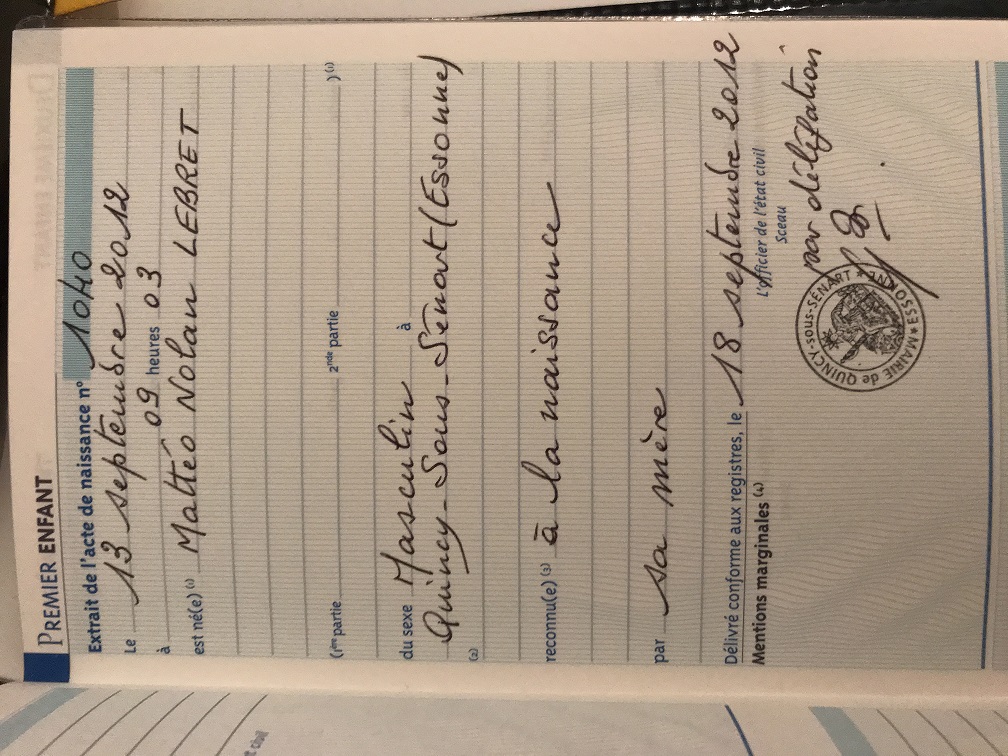 PREMIER ENFANT
Extrait de l'acte de naissance n° 1040
Le 13 septembre 2012
à 09 heures 03
est né(e) (1) Mattéo Nolan LEBRET
(1ère partie 2nde partie ) (1)
du sexe Masculin à
Quincy-Sous-Sénart (Essonne)
(2)
reconnu(e) (3) à la naissance
par sa mère
Délivré conforme aux registres, le 18 septembre 2012
Mentions marginales (4) L'officier de l'état civil
Sceau
par délégation
MAIRIE de QUINCY-sous-SENART * ESSONNE *
t civil